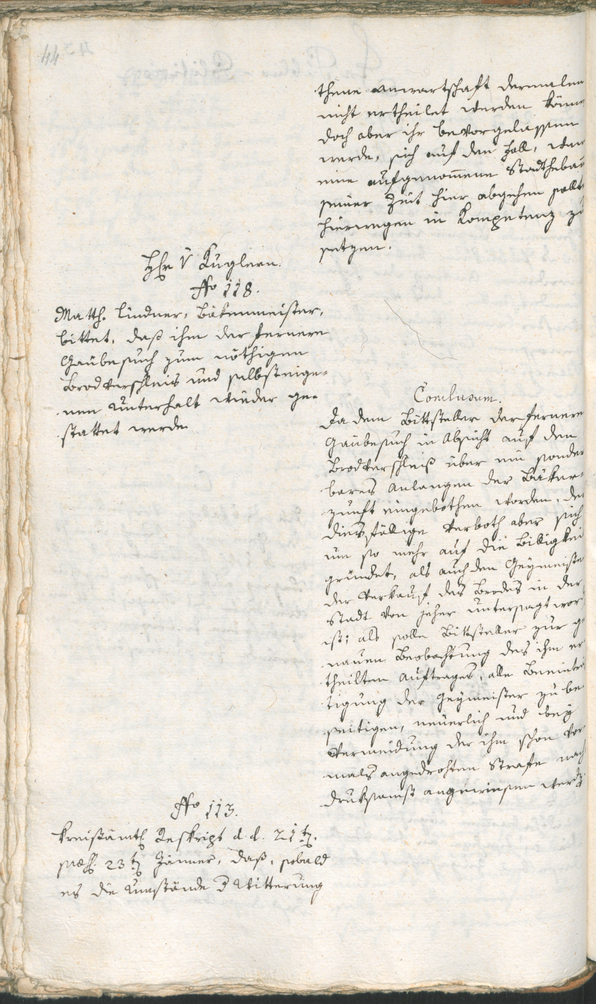 44
thene Anwartschaft dermalen
nicht ertheilet werden könne
doch aber ihr bevorgelassen
werde, sich auf den Fall, wenn
eine aufgenommene Stadthebam
seiner Zeit hier abgehen sollte
hierwegen in Kompetenz zu
setzen.
Hr v Kuglern.
Nro 118.
Matth. Lindner, Bäkenmeister,
bittet, daß ihm der fernere
Gäubesuch zum nöthigen
Brodverschleis und selbsteige-
nen Unterhalt wieder ge-
stattet werde
Conclusum.
Da dem Bittsteller der fernere
Gäubesuch in Absicht auf den
Brodverschleiß über ein sonder
bares Anlangen der Bäken-
zunft eingebothen worden, der
diesfällige Verboth aber sich
um so mehr auf die Biligkeit
gründet, als auch den Geymeiste
der Verkauf des Brodes in der
Stadt von jeher untersagt wor
ist; als solle Bittsteller zur ge
nauen Beobachtung des ihm er
theilten Auftrages, alle Beeinträ
tigung der Geymeister zu be
seitigen, neuerlich und bey
Vermeidung der ihm schon vor
mals angedrohten Strafe nach
druksamst angewiesen werde
Nro 113.
Kreisämtl Reskript d. d. 21t
praes. 23t Jänner, daß, sobald
es die Umstände d Witterung